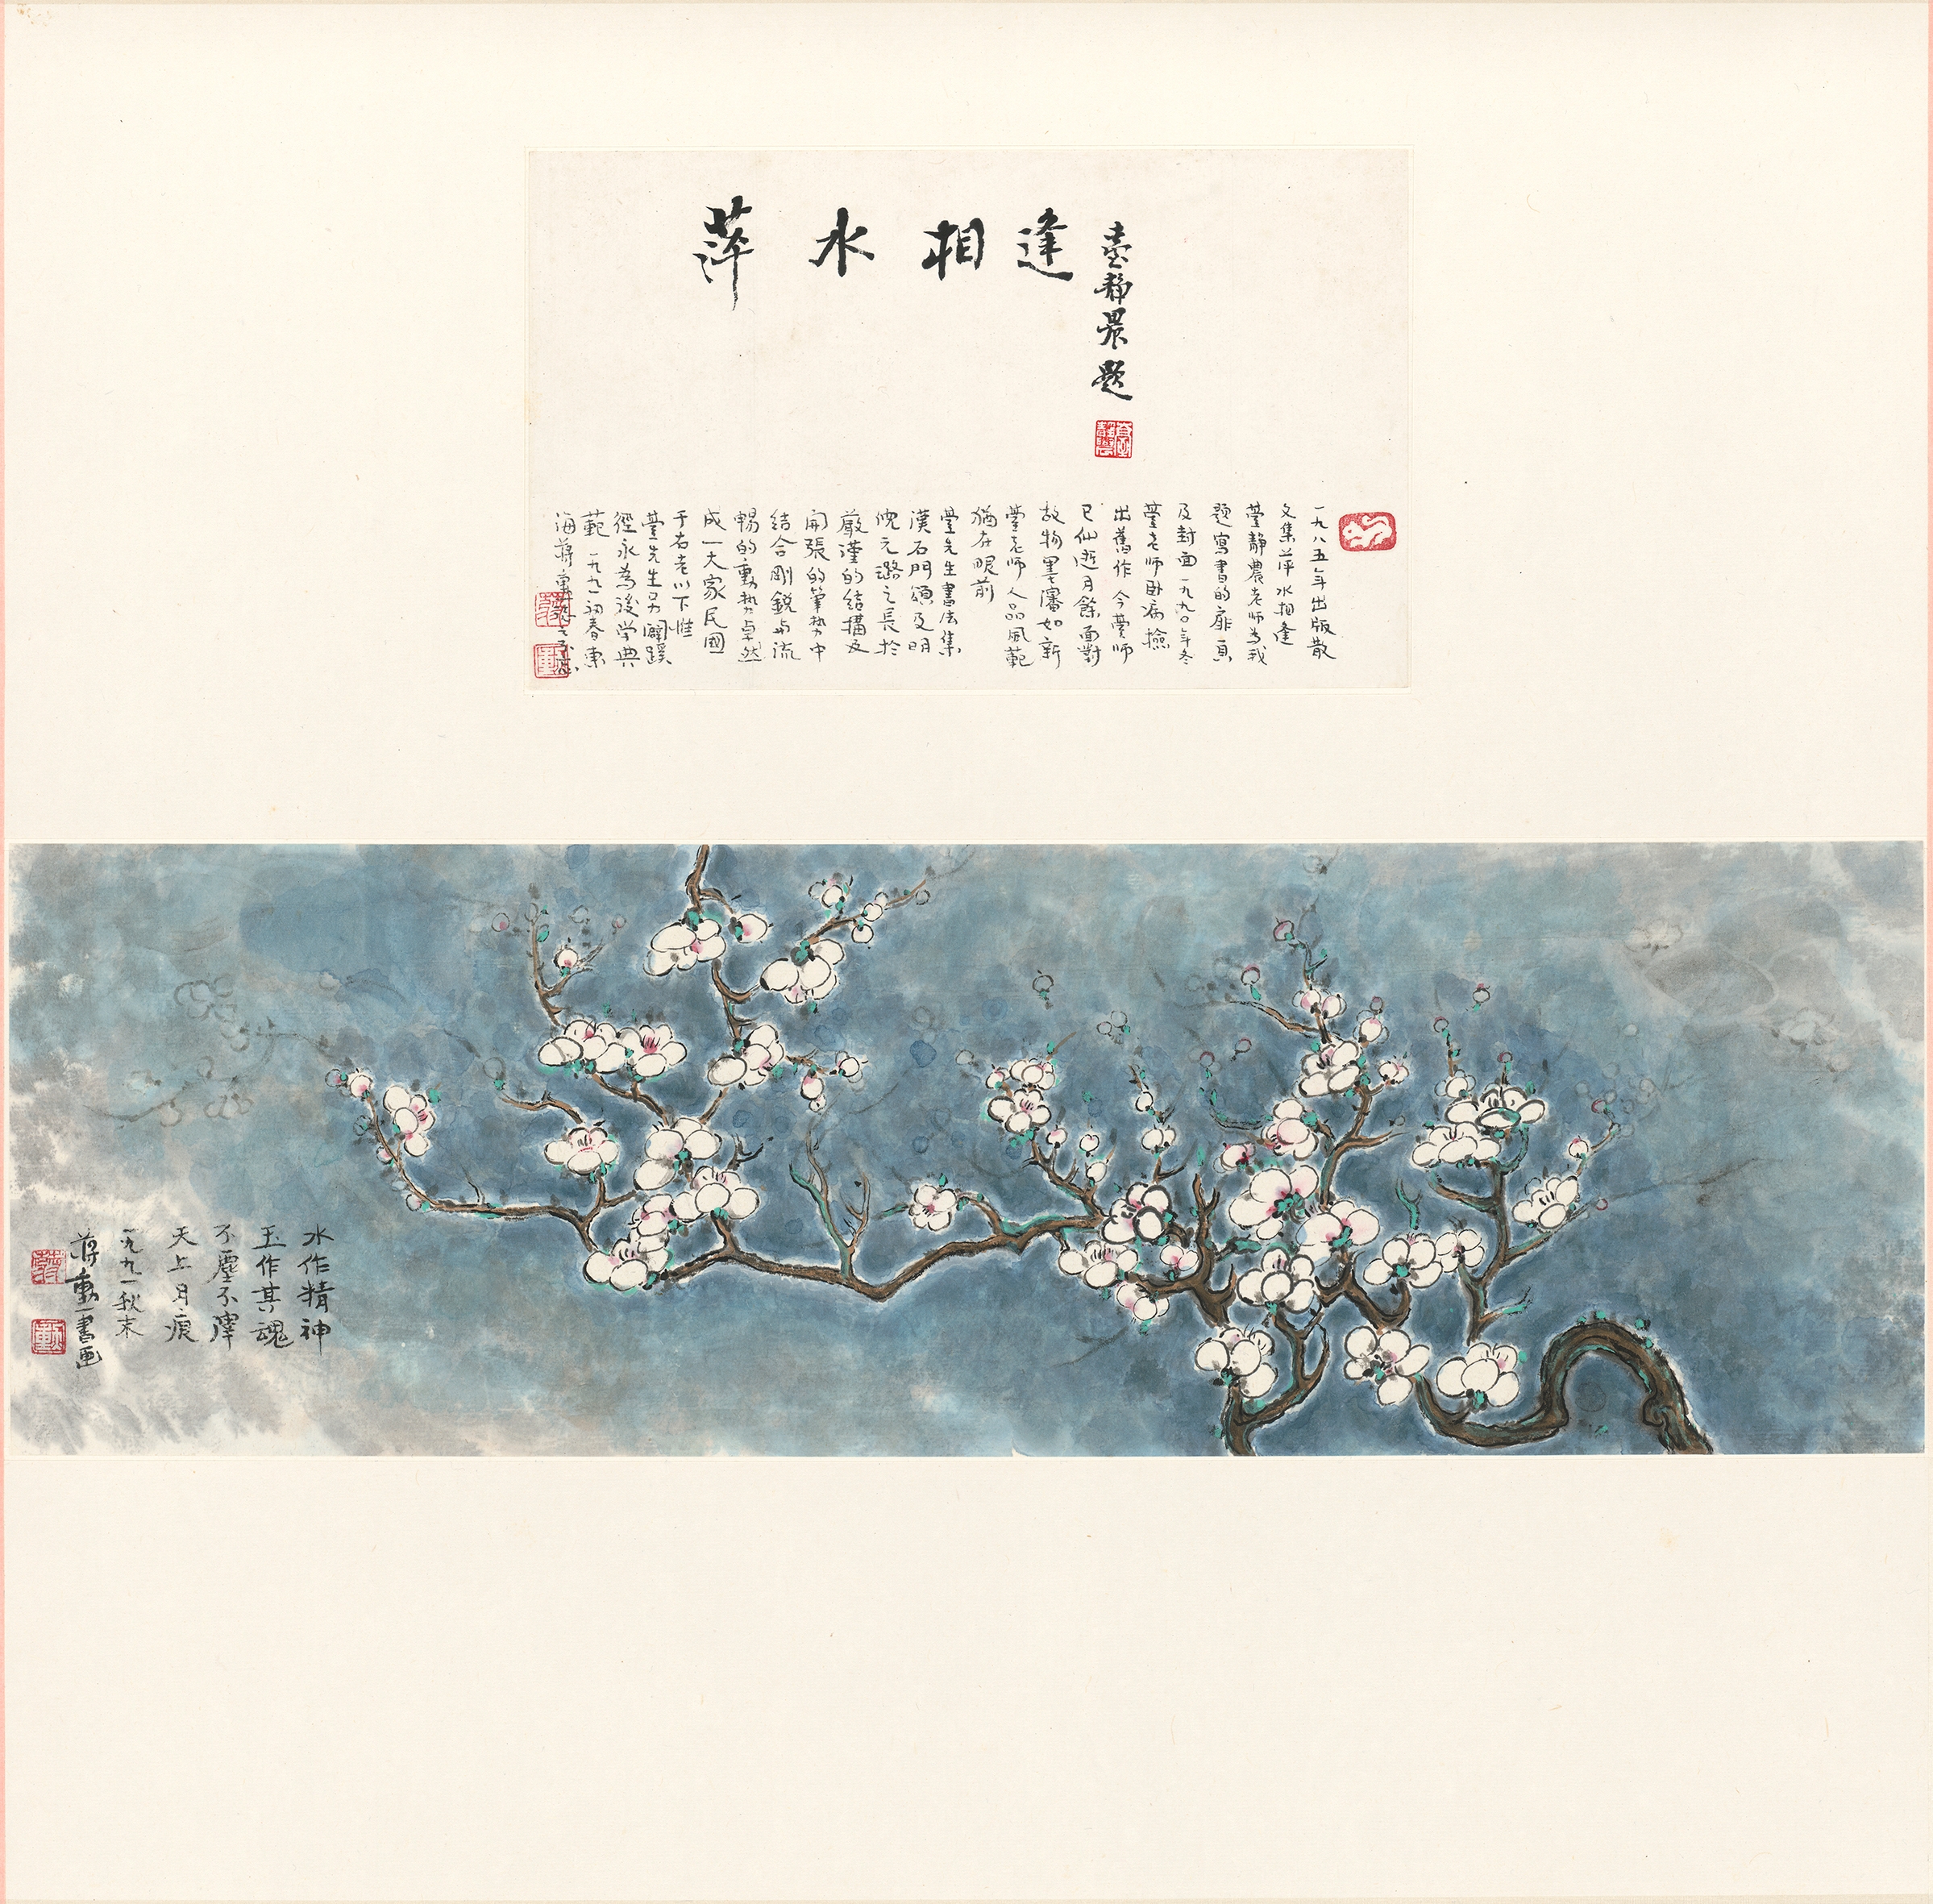 萍水相逢
臺靜農題
一九八五年出版散
文集萍水相逢
臺靜農老師為我
題寫書的扉頁
及封面一九九〇年冬
臺老師臥病撿
出舊作今臺師
已仙逝月餘面對
故物墨瀋如新
臺老師人品風範
猶在眼前
臺先生書法集
漢石門頌及明
倪元璐之長於
嚴謹的結構及
開張的筆勢中
結合剛銳與流
暢的動勢卓然
成一大家民國
于右老以下惟
臺先生另闢蹊
徑永為後學典
範一九九一初春東
海蔣勳
水作精神
玉作其魂
不塵不滓
天上月痕
一九九一秋末
蔣勳書画